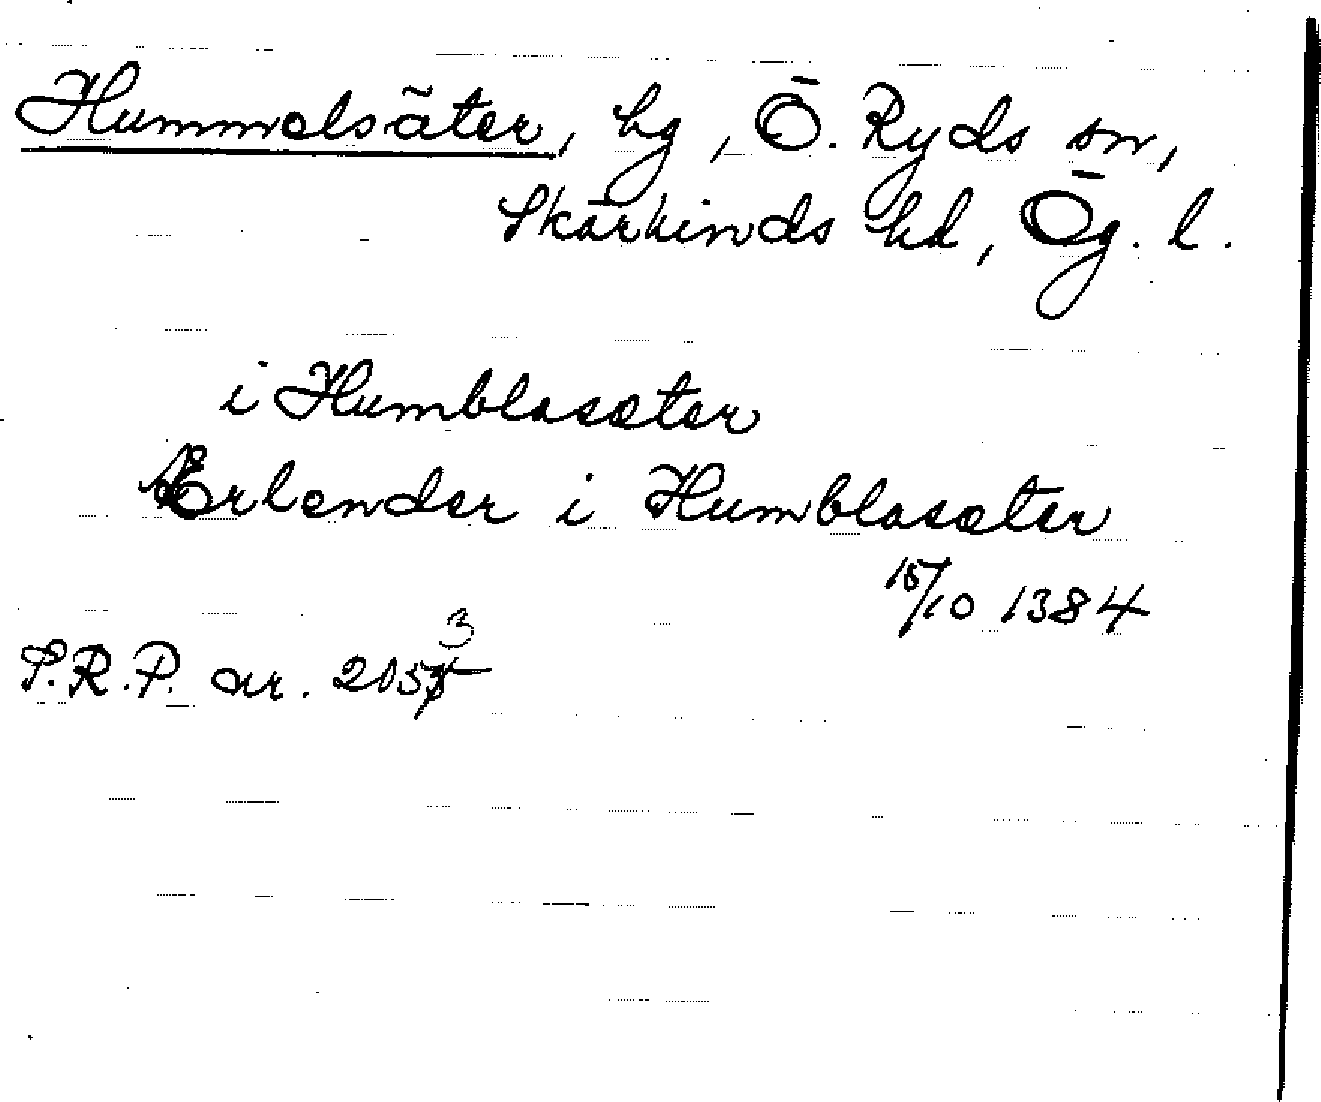 Hummelsäter, hg, Ö. Ryds sn,
Skärkinds hd, Ög. l.
i Humblasæter
Erlender i Humblasæter
15/10 1384
S.R.P. nr. 2053